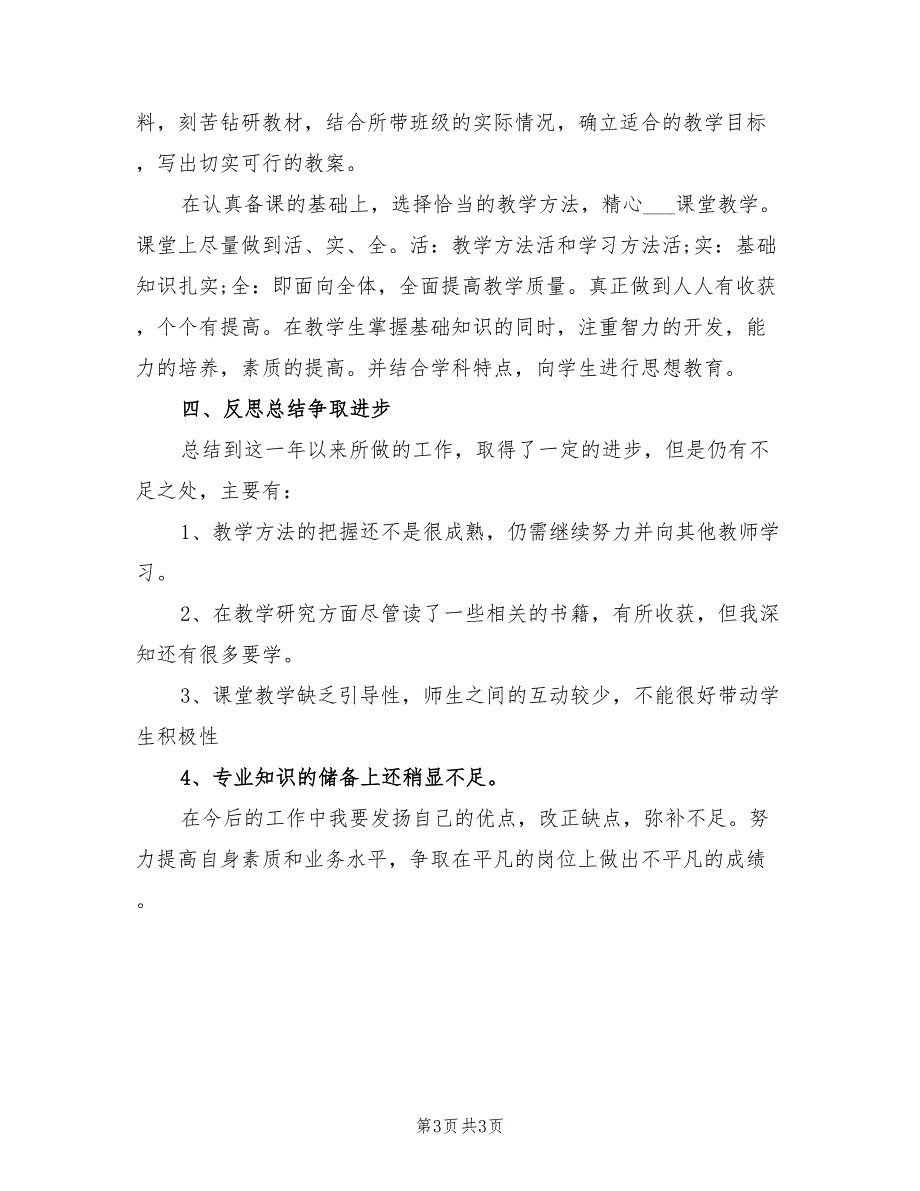 料，刻苦钻研教材，结合所带班级的实际情况，确立适合的教学目标
，写出切实可行的教案。
在认真备课的基础上，选择恰当的教学方法，精心___课堂教学。
课堂上尽量做到活、实、全。活：教学方法活和学习方法活;实：基础
知识扎实;全：即面向全体，全面提高教学质量。真正做到人人有收获
，个个有提高。在教学生掌握基础知识的同时，注重智力的开发，能
力的培养，素质的提高。并结合学科特点，向学生进行思想教育。
四、反思总结争取进步
总结到这一年以来所做的工作，取得了一定的进步，但是仍有不
足之处，主要有：
1、教学方法的把握还不是很成熟，仍需继续努力并向其他教师学
习。
2、在教学研究方面尽管读了一些相关的书籍，有所收获，但我深
知还有很多要学。
3、课堂教学缺乏引导性，师生之间的互动较少，不能很好带动学
生积极性
4、专业知识的储备上还稍显不足。
在今后的工作中我要发扬自己的优点，改正缺点，弥补不足。努
力提高自身素质和业务水平，争取在平凡的岗位上做出不平凡的成绩
。
第3页 共3页